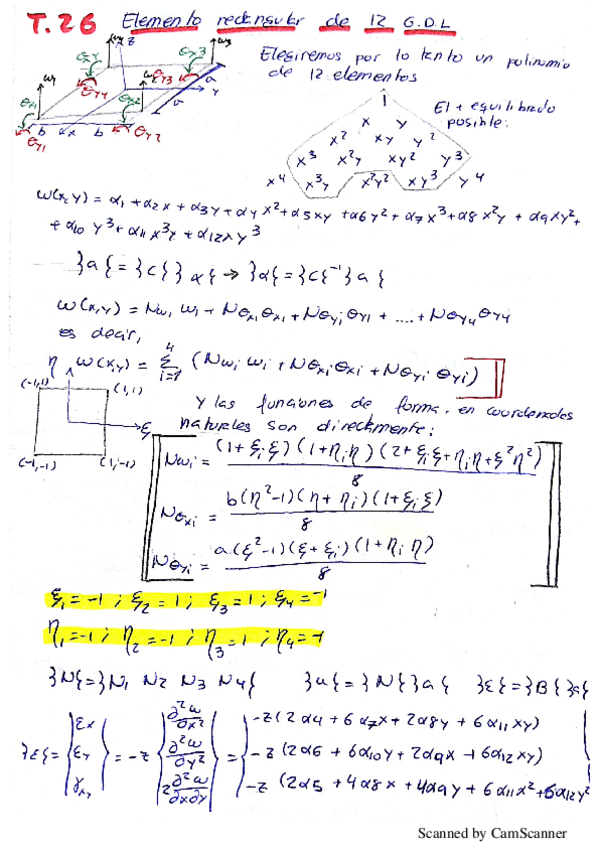 T.26 Elemento rectangular de 12 G.D.L
Elegiremos por lo tanto un polinomio
de 12 elementos
El + equilibrado
posible:
1
x y
x² xy y²
x³ x²y xy² y³
x⁴ x³y x²y² xy³ y⁴
z
y
x
a
a
b
b
θx1
θy1
θx2
θy2
θx3
θy3
θy4
w(x,y) = α1 + α2x + α3y + α4x² + α5xy + α6y² + α7x³ + α8x²y + α9xy² +
+ α10 y³ + α11 x³y + α12 xy³
}a{ = }C{ }α{ → }α{ = }C{⁻¹ }a{
w(x,y) = Nw1 w1 + Nθx1 θx1 + Nθy1 θy1 + .... + Nθy4 θy4
es decir,
w(x,y) = Σ⁴ᵢ₌₁ (Nwi wi + Nθxi θxi + Nθyi θyi)
η
(-1,1) (1,1)
ξ
(-1,-1) (1,-1)
Y las funciones de forma, en coordenadas
naturales son directamente:
Nwi = (1+ξiξ)(1+ηiη)(2+ξiξ+ηiη+ξ²η²) / 8
Nθxi = b(η²-1)(η+ηi)(1+ξiξ) / 8
Nθyi = a(ξ²-1)(ξ+ξi)(1+ηiη) / 8
ξ1 = -1 ; ξ2 = 1 ; ξ3 = 1 ; ξ4 = -1
η1 = -1 ; η2 = -1 ; η3 = 1 ; η4 = -1
}N{ = }N1 N2 N3 N4{ }u{ = }N{ }a{ }ε{ = }B{ }a{
}ε{ = {εx εy γxy} = -z {∂²w/∂x² ∂²w/∂y² 2∂²w/∂x∂y} =
-z(2α4 + 6α7x + 2α8y + 6α11xy)
-z(2α6 + 6α10y + 2α9x + 6α12xy)
-z(2α5 + 4α8x + 4α9y + 6α11x² + 6α12y²
Scanned by CamScanner